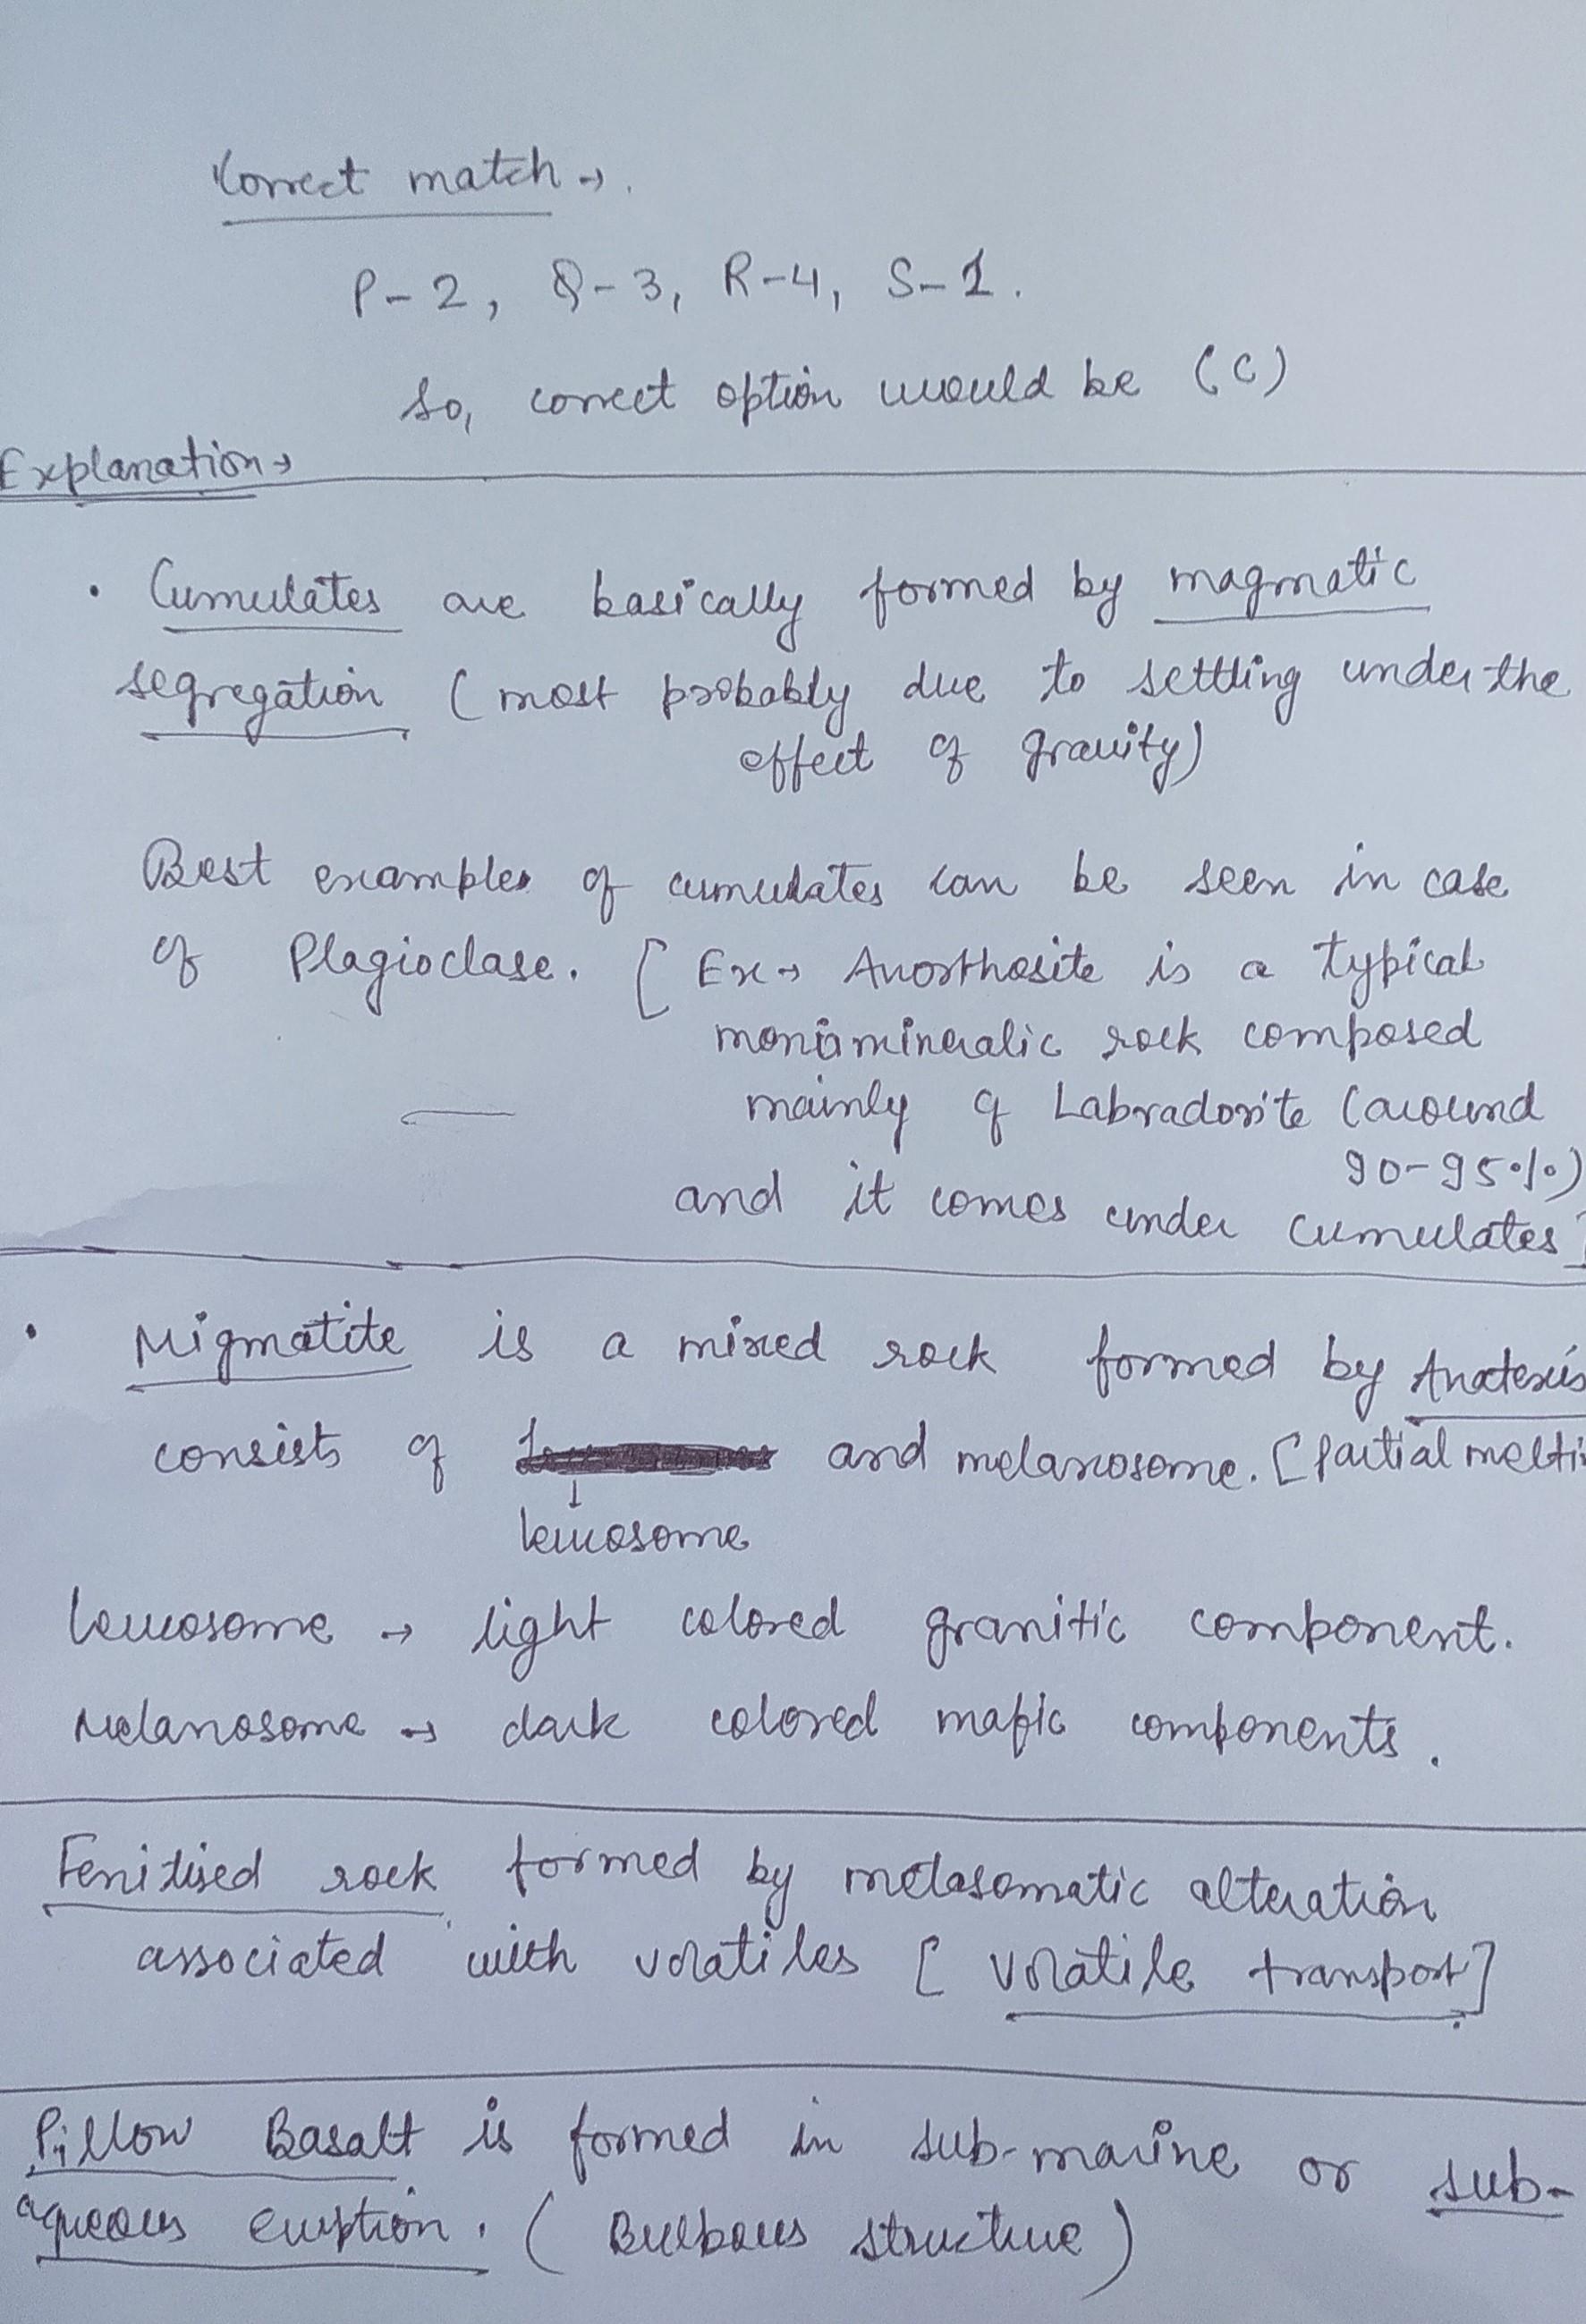 Correct match →.
P-2, Q-3, R-4, S-1.
So, correct option would be (C)
Explanation →
• Cumulates are basically formed by magmatic
segregation (most probably due to settling under the
effect of gravity)
Best examples of cumulates can be seen in case
of Plagioclase. [Ex → Anorthosite is a typical
monomineralic rock composed
mainly of Labradorite (around
90-95%)
and it comes under cumulates]
• Migmatite is a mixed rock formed by Anatexis
consists of and melanosome. [Partial melti
↓
leucosome
leucosome → light colored granitic component.
Melanosome → dark colored mafic components.
Fenitised rock formed by metasomatic alteration
associated with volatiles [volatile transport]
Pillow Basalt is formed in sub-marine or sub-
aqueous eruption. (Bulbous structure)